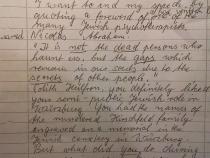 I want to end my speech by
quoting a foreword of one of the
many Jewish psychotherapists,
Nicolas Abraham:
"It is not the dead persons who
haunt us, but the gaps which
remain in our souls due to the
secrets of other people."
you definitely
your semi-public Jewish role in
You had the names of
the murdered family
engraved on a memorial in the
Jewish cemetery in
But what did you do